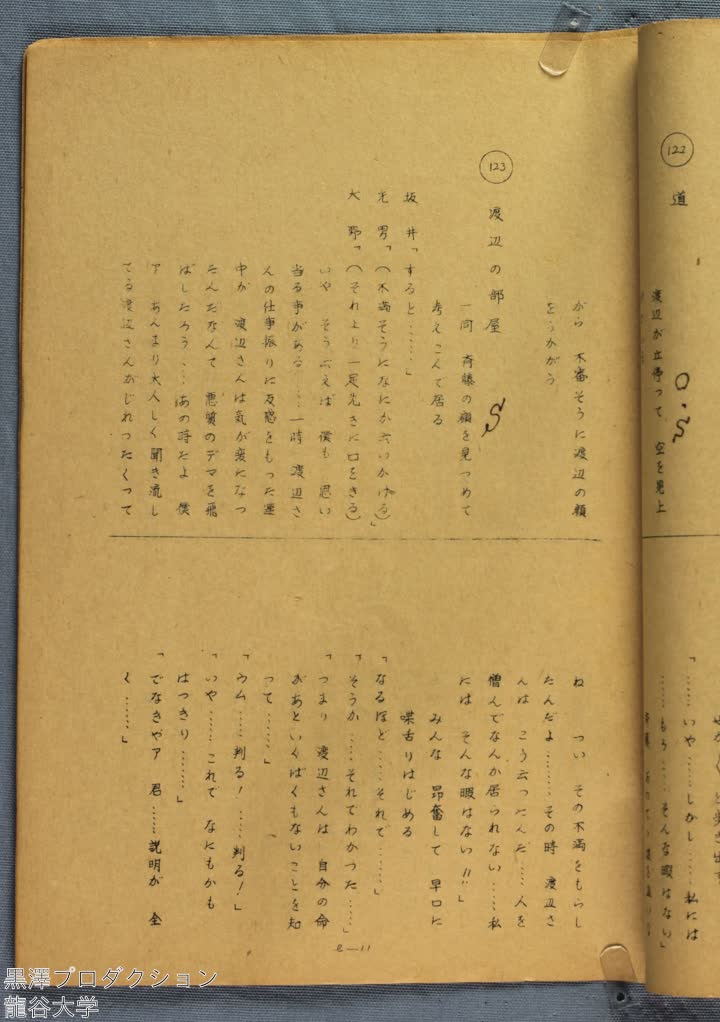 122
道
O.S
渡辺が立停って 空を見上
「……いや……しかし……私には
……もう……そんな暇はない」
から 不審そうに渡辺の顔
をうかがう
123
渡辺の部屋
S
一同 斉藤の顔を見つめて
考えこんで居る
坂井「すると……」
光男「(不満そうになにか云いかける)」
大野「(それより一足先きに口をきる)
いや そう云えば 僕も 思い
当る事がある……一時 渡辺さ
んの仕事振りに反感をもった連
中が 渡辺さんは気が変になつ
たんだなんて 悪質のデマを飛
ばしたろう……あの時だよ 僕
ア あんまり大人しく聞き流し
てる渡辺さんがじれつたくつて
ね つい その不満をもらし
たんだよ……その時 渡辺さ
んは こう云つたんだ……人を
憎んでなんか居られない……私
には そんな暇はない!!」
みんな 昂奮して 早口に
喋舌りはじめる
「なるほど……それで……」
「そうか……それでわかつた……」
「つまり 渡辺さんは 自分の命
があといくばくもないことを知
って……」
「ウム……判る!……判る!」
「いや……これで なにもかも
はつきり……」
「でなきやア 君……説明が 全
く……」
e—11
黒澤プロダクション
龍谷大学